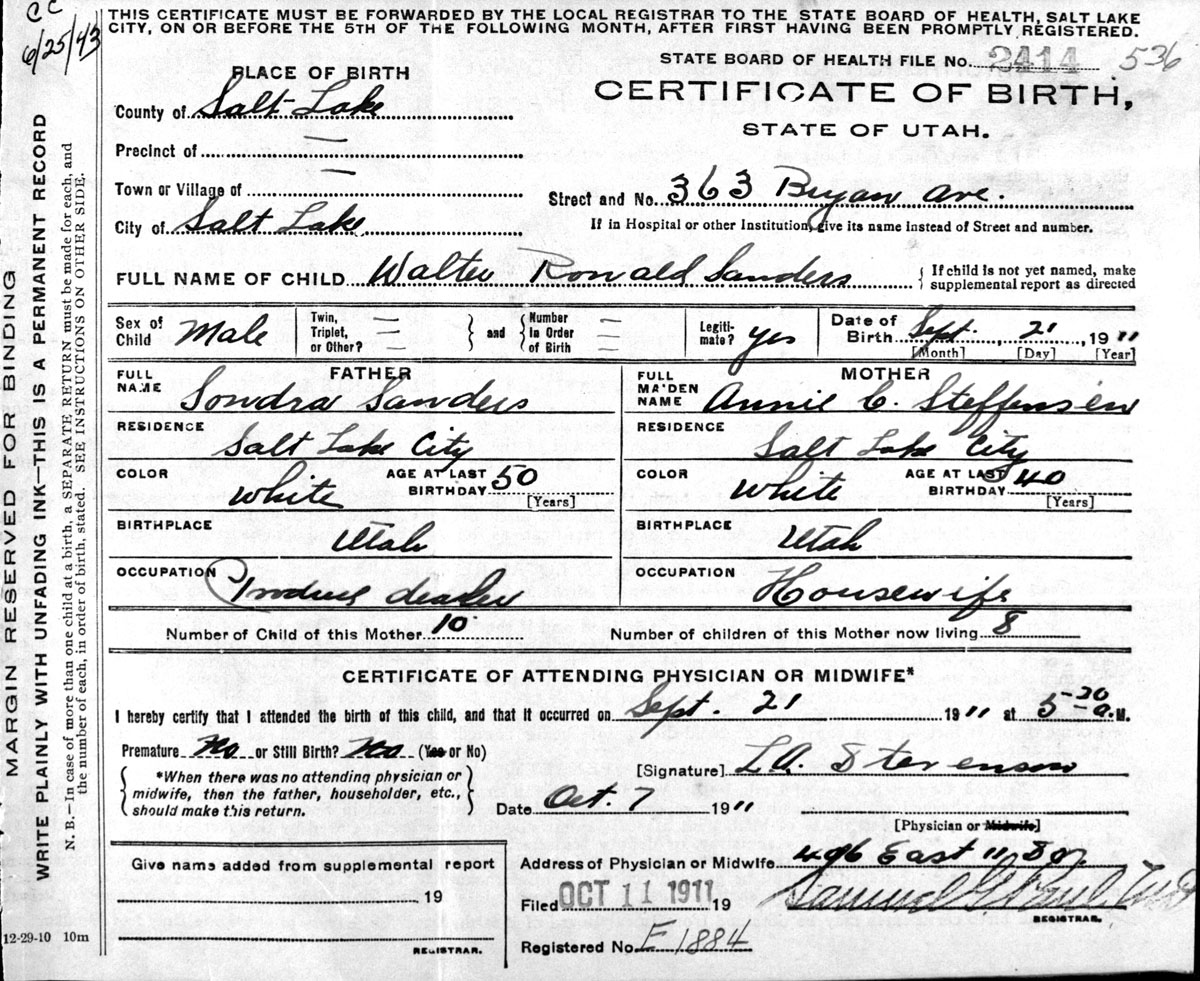 CC
6/25/43
THIS CERTIFICATE MUST BE FORWARDED BY THE LOCAL REGISTRAR TO THE STATE BOARD OF HEALTH, SALT LAKE
CITY, ON OR BEFORE THE 5TH OF THE FOLLOWING MONTH, AFTER FIRST HAVING BEEN PROMPTLY REGISTERED.
STATE BOARD OF HEALTH FILE No. 2414 536
PLACE OF BIRTH
CERTIFICATE OF BIRTH,
STATE OF UTAH.
County of Salt Lake
Precinct of —
Town or Village of —
Street and No. 363 Bryan Ave.
City of Salt Lake
If in Hospital or other Institution, give its name instead of Street and number.
FULL NAME OF CHILD Walter Ronald Sanders { If child is not yet named, make supplemental report as directed
Sex of Child Male Twin, Triplet, or Other? — } and { Number In Order of Birth — Legiti-mate? yes Date of Birth Sept. 21, 1911
[Month] [Day] [Year]
FATHER
MOTHER
FULL NAME Sondra Sanders
FULL MAIDEN NAME Annie C. Steffensen
RESIDENCE Salt Lake City
RESIDENCE Salt Lake City
COLOR White AGE AT LAST BIRTHDAY 50 [Years]
COLOR White AGE AT LAST BIRTHDAY 40 [Years]
BIRTHPLACE Utah
BIRTHPLACE Utah
OCCUPATION Produce dealer
OCCUPATION Housewife
Number of Child of this Mother 10 Number of children of this Mother now living 8
CERTIFICATE OF ATTENDING PHYSICIAN OR MIDWIFE*
I hereby certify that I attended the birth of this child, and that it occurred on Sept. 21 1911 at 5-20 a.M.
Premature No or Still Birth? No (Yes or No)
*When there was no attending physician or
midwife, then the father, householder, etc.,
should make this return.
[Signature] L.A. Stevenson
Date Oct. 7 1911
[Physician or Midwife]
Give name added from supplemental report
19
REGISTRAR.
Address of Physician or Midwife 406 East 11 So
Filed OCT 11 1911 19 Samuel G. Paul, M.D.
REGISTRAR.
Registered No. E 1884
12-29-10 10m
MARGIN RESERVED FOR BINDING
WRITE PLAINLY WITH UNFADING INK—THIS IS A PERMANENT RECORD
N. B.—In case of more than one child at a birth, a SEPARATE RETURN must be made for each, and
the number of each, in order of birth, stated. SEE INSTRUCTIONS ON OTHER SIDE.